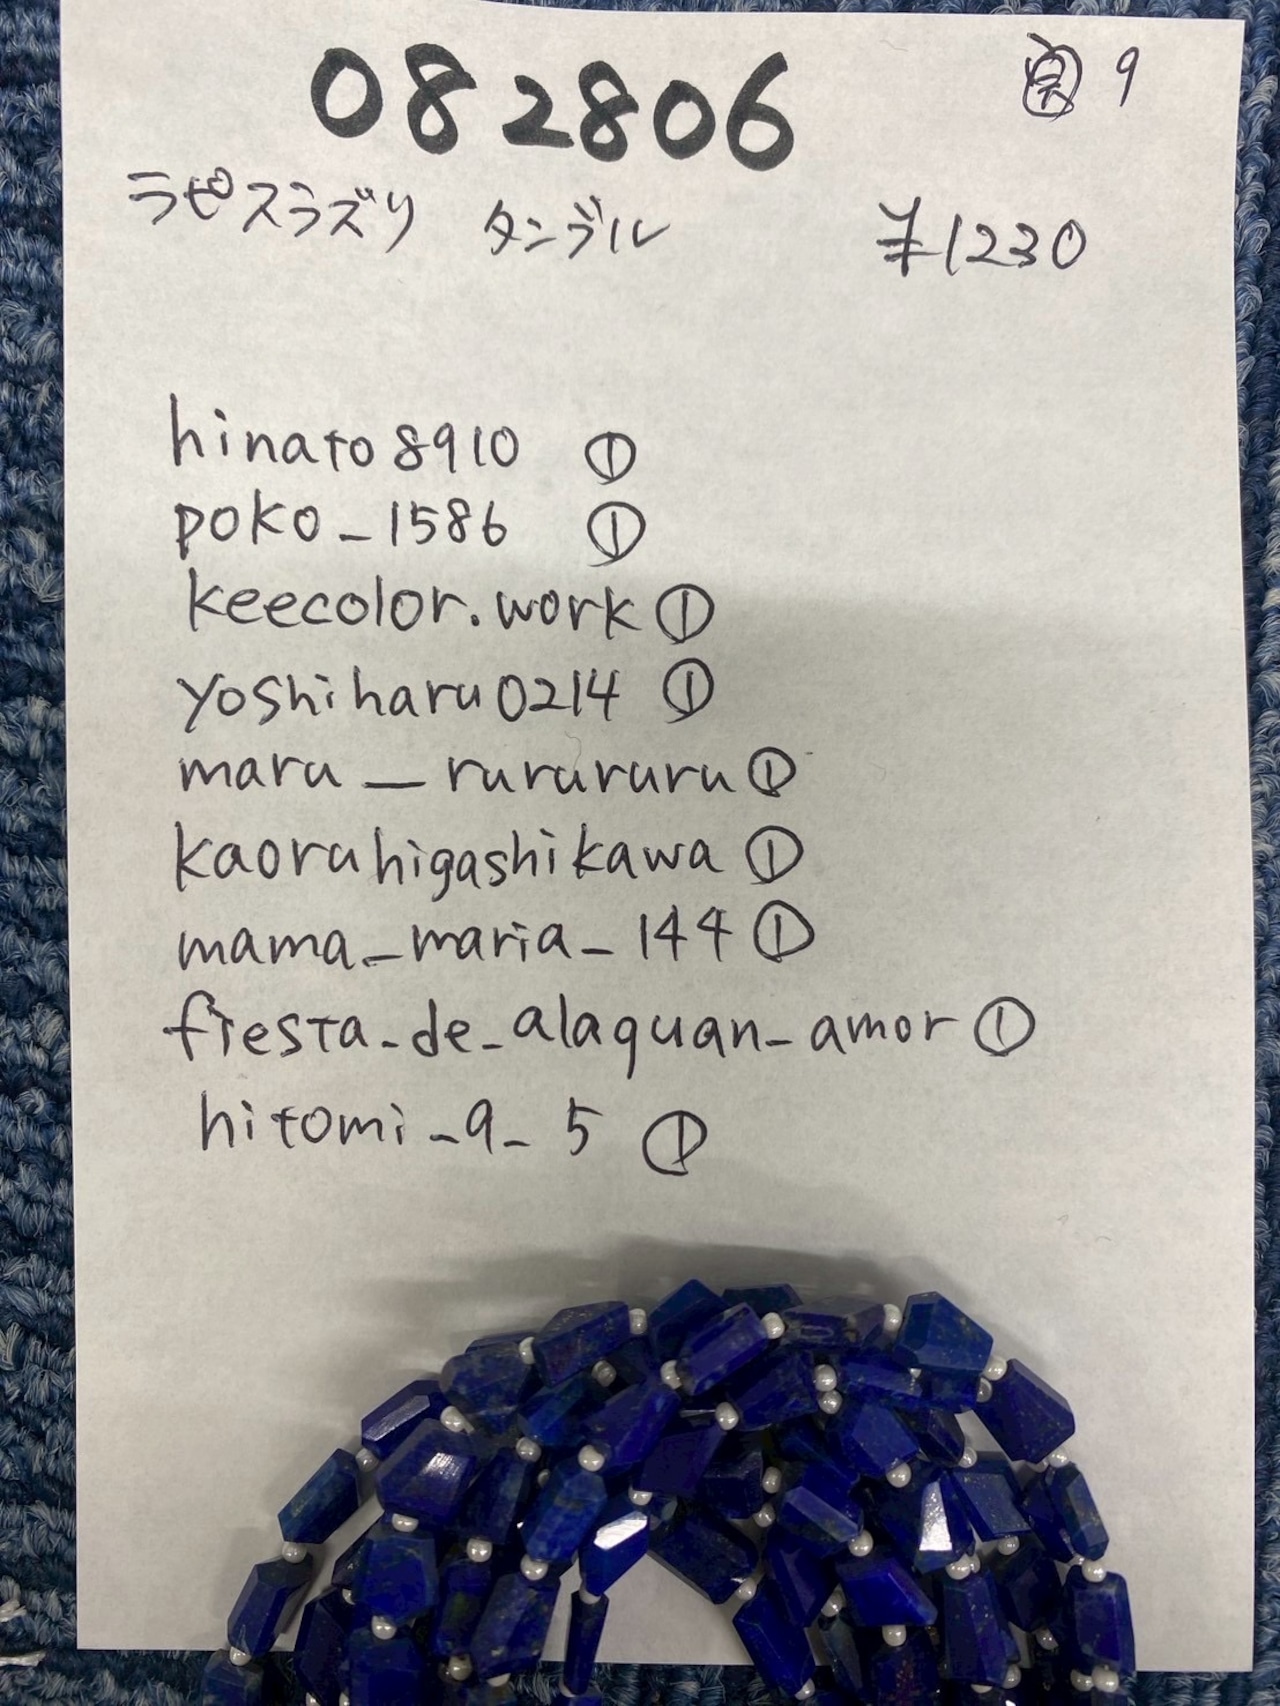 082806
9
ラピスラズリ タンブル ¥1230
hinato8910 ①
poko_1586 ①
keecolor.work ①
yoshiharu0214 ①
maru__rurururu ①
kaoruhigashikawa ①
mama_maria_144 ①
fiesta_de_alaquan_amor ①
hitomi_9_5 ①